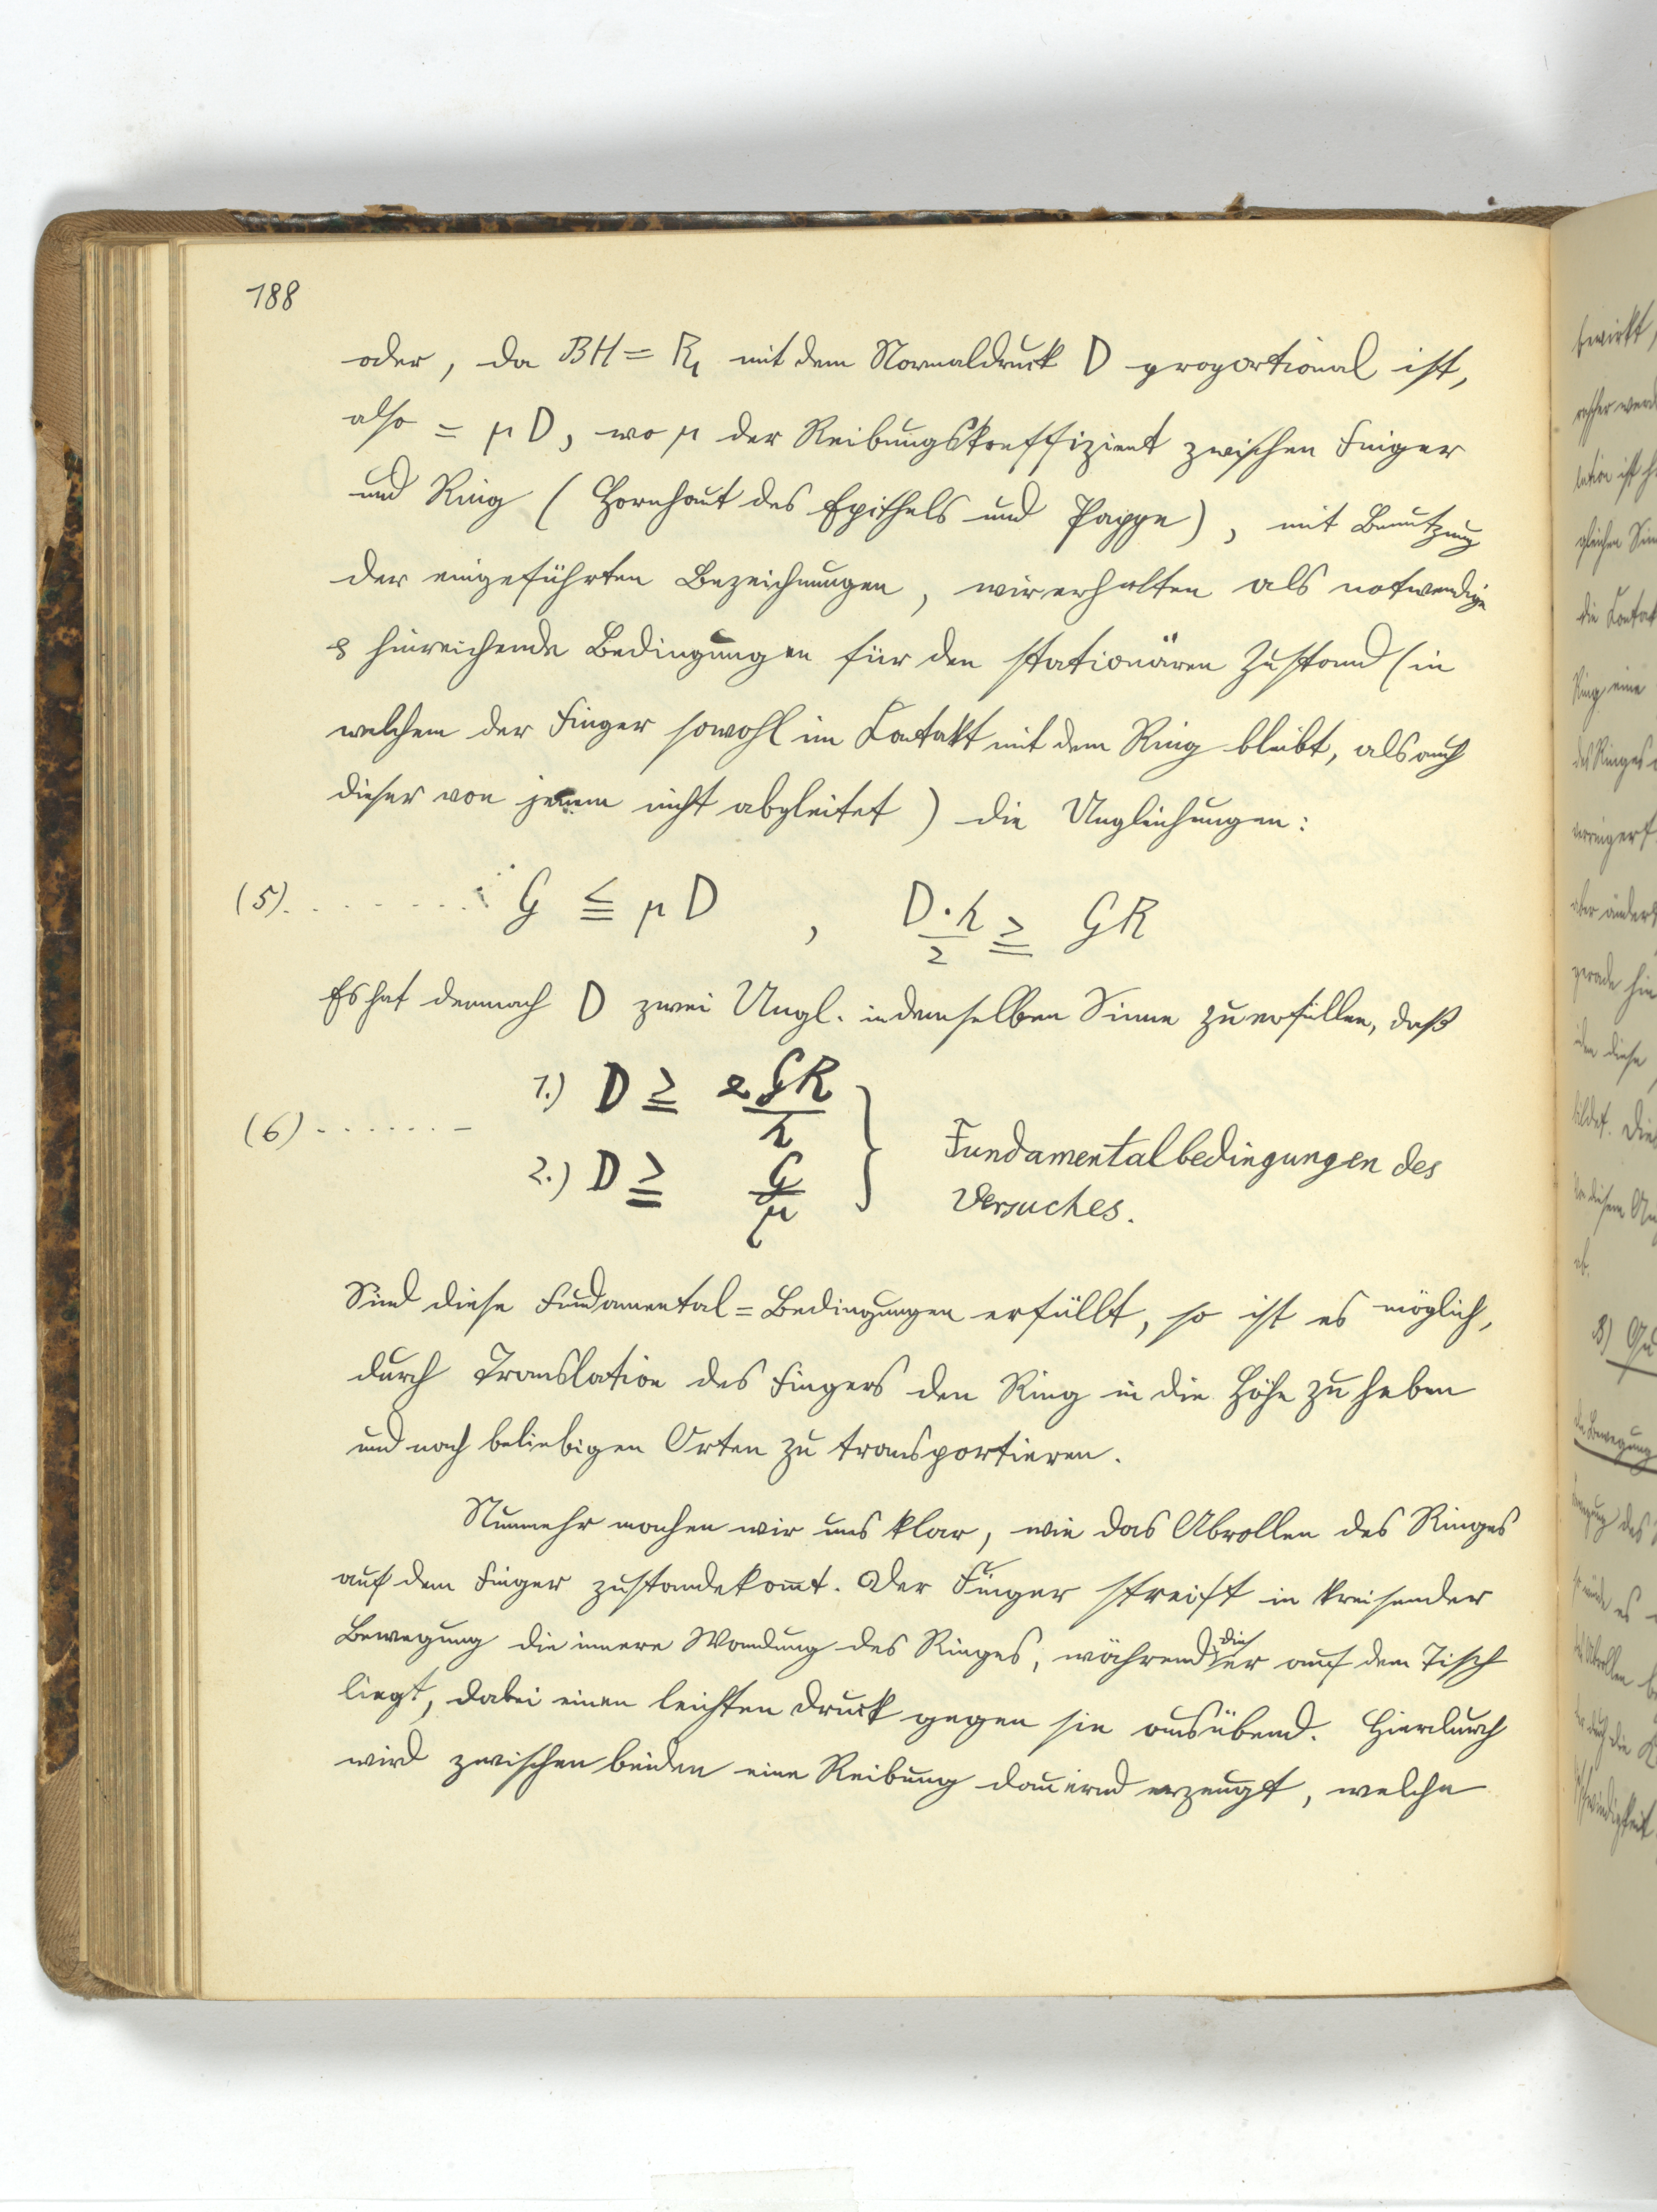 188
oder, da BH = R₁ mit dem Normaldruck D proportional ist,
also = μD, wo μ der Reibungskoeffizient zwischen Finger
und Ring (Hornhaut des Epithels und Pappe), mit Benutzung
der eingeführten Bezeichnungen, wir erhalten als notwendige
& hinreichende Bedingungen für den stationären Zustand (in
welchem der Finger sowohl im Kontakt mit dem Ring bleibt, als auch
dieser von jenem nicht abgleitet) die Ungleichungen:
(5). . . . . . . . G ≦ μD , D·h/2 ≧ GR
Es hat demnach D zwei Ungl. in demselben Sinne zu erfüllen, daß
1.) D ≧ 2GR/h
(6) . . . . . . –
2.) D ≧ G/μ
Fundamentalbedingungen des
Versuches.
Sind diese Fundamental=Bedingungen erfüllt, so ist es möglich,
durch Translation des Fingers den Ring in die Höhe zu heben
und nach beliebigen Orten zu transportieren.
Nunmehr machen wir uns klar, wie das Abrollen des Ringes
auf dem Finger zustandekom̅t. Der Finger streift in kreisender
Bewegung die innere Wandung des Ringes, während dieser auf dem Tisch
liegt, dabei einen leichten Druck gegen sie ausübend. Hierdurch
wird zwischen beiden eine Reibung dauernd erzeugt, welche